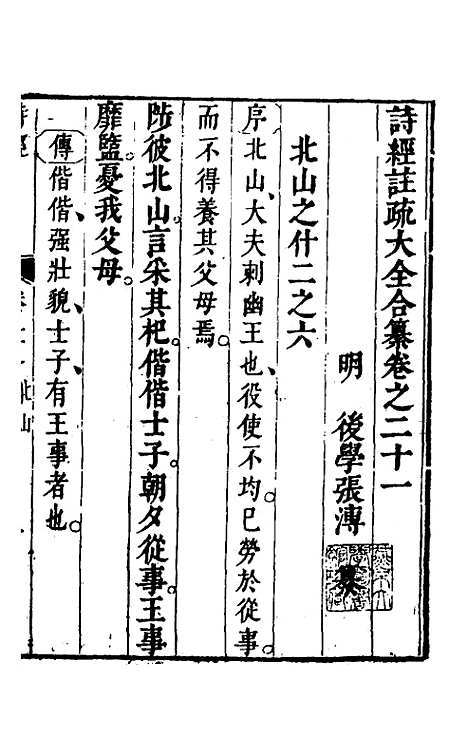 詩經註疏大全合纂卷之二十一
明　後學張溥　纂
北山之什二之六
序北山、大夫刺幽王也、役使不均。已勞於從事。
而不得養其父母焉。
陟彼北山。言采其杞。偕偕士子。朝夕從事。王事
靡盬。憂我父母。
傳偕偕、强壯貌、士子、有王事者也。